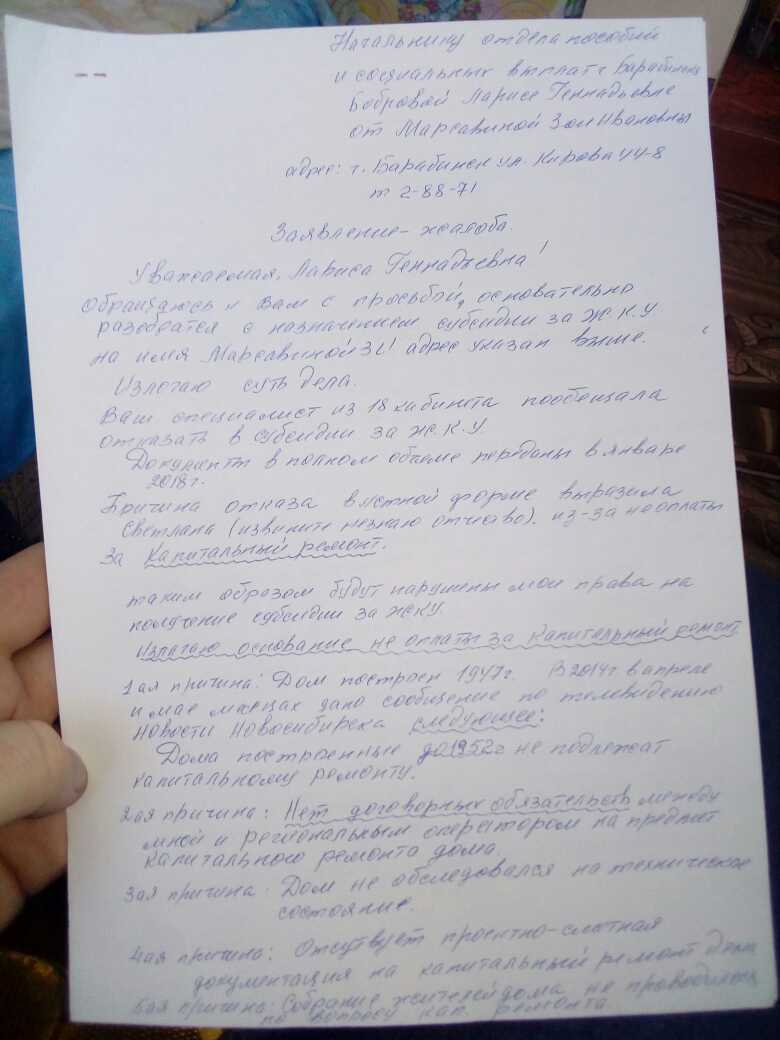 Начальнику отдела пособий
и социальных выплат г Барабинска
Бобровой Ларисе Геннадьевне
от Марсавиной Зои Ивановны
адрес: г. Барабинск ул. Кирова 44-8
т 2-88-71
Заявление-жалоба.
Уважаемая, Лариса Геннадьевна!
Обращаюсь к Вам с просьбой, основательно
разобратся с назначением субсидии за Ж.К.У
на имя Марсавиной З И адрес указан выше.
Излогаю суть дела.
Ваш специалист из 18 кабинета пообещала
отказать в субсидии за Ж.К.У.
Документы в полном объеме переданы в январе
2018г.
Причина отказа в устной форме выразила
Светлана (извините незнаю отчество). из-за неоплаты
За Капитальный ремонт.
таким образом будут нарушены мои права на
получение субсидии за ЖКУ.
Излагаю основание не оплаты за Капитальный ремонт
1ая причина: Дом построен 1947г. В 2014г в апреле
и мае месяцах дано сообщение по телевидению
Новости Новосибирска следующее:
Дома построенные до 1952г не подлежат
капитальному ремонту.
2ая причина: Нет договорных обязательств между
мной и региональным оператором на предмет
Капитального ремонта дома.
3ая причина: Дом не обследовался на техническое
состояние.
4ая причина: Отсутвует проектно-сметная
документация на капитальный ремонт дома
5ая причина: Собрание жителей дома не проводилось
по вопросу кап. ремонта.